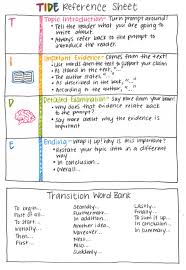 TIDE Reference Sheet
T
Topic Introduction- Turn prompt around!
• Tell the reader what you are going to write about.
• Always refer back to the prompt to introduce the reader.
I
Important Evidence- Comes from the text!
Use words from the text to support your claim
• As stated in the text,
• The author states,
• As described in the text,
• According to the text,
D
Detailed Examination- Say more down your own!
• Why does that evidence relate back to the prompt?
• Say more about why the evidence is important
E
Ending- Wrap it up! Why is this important?
• Restate your topic idea in a different way
• In conclusion...
• Overall...
Transition Word Bank
To begin...
First of all...
To start...
Initially...
Then...
First...
Secondly...
Furthermore...
In addition...
Another idea...
Moreover...
Next...
Also...
Lastly...
Finally...
To sum it up...
In conclusion...
Overall...